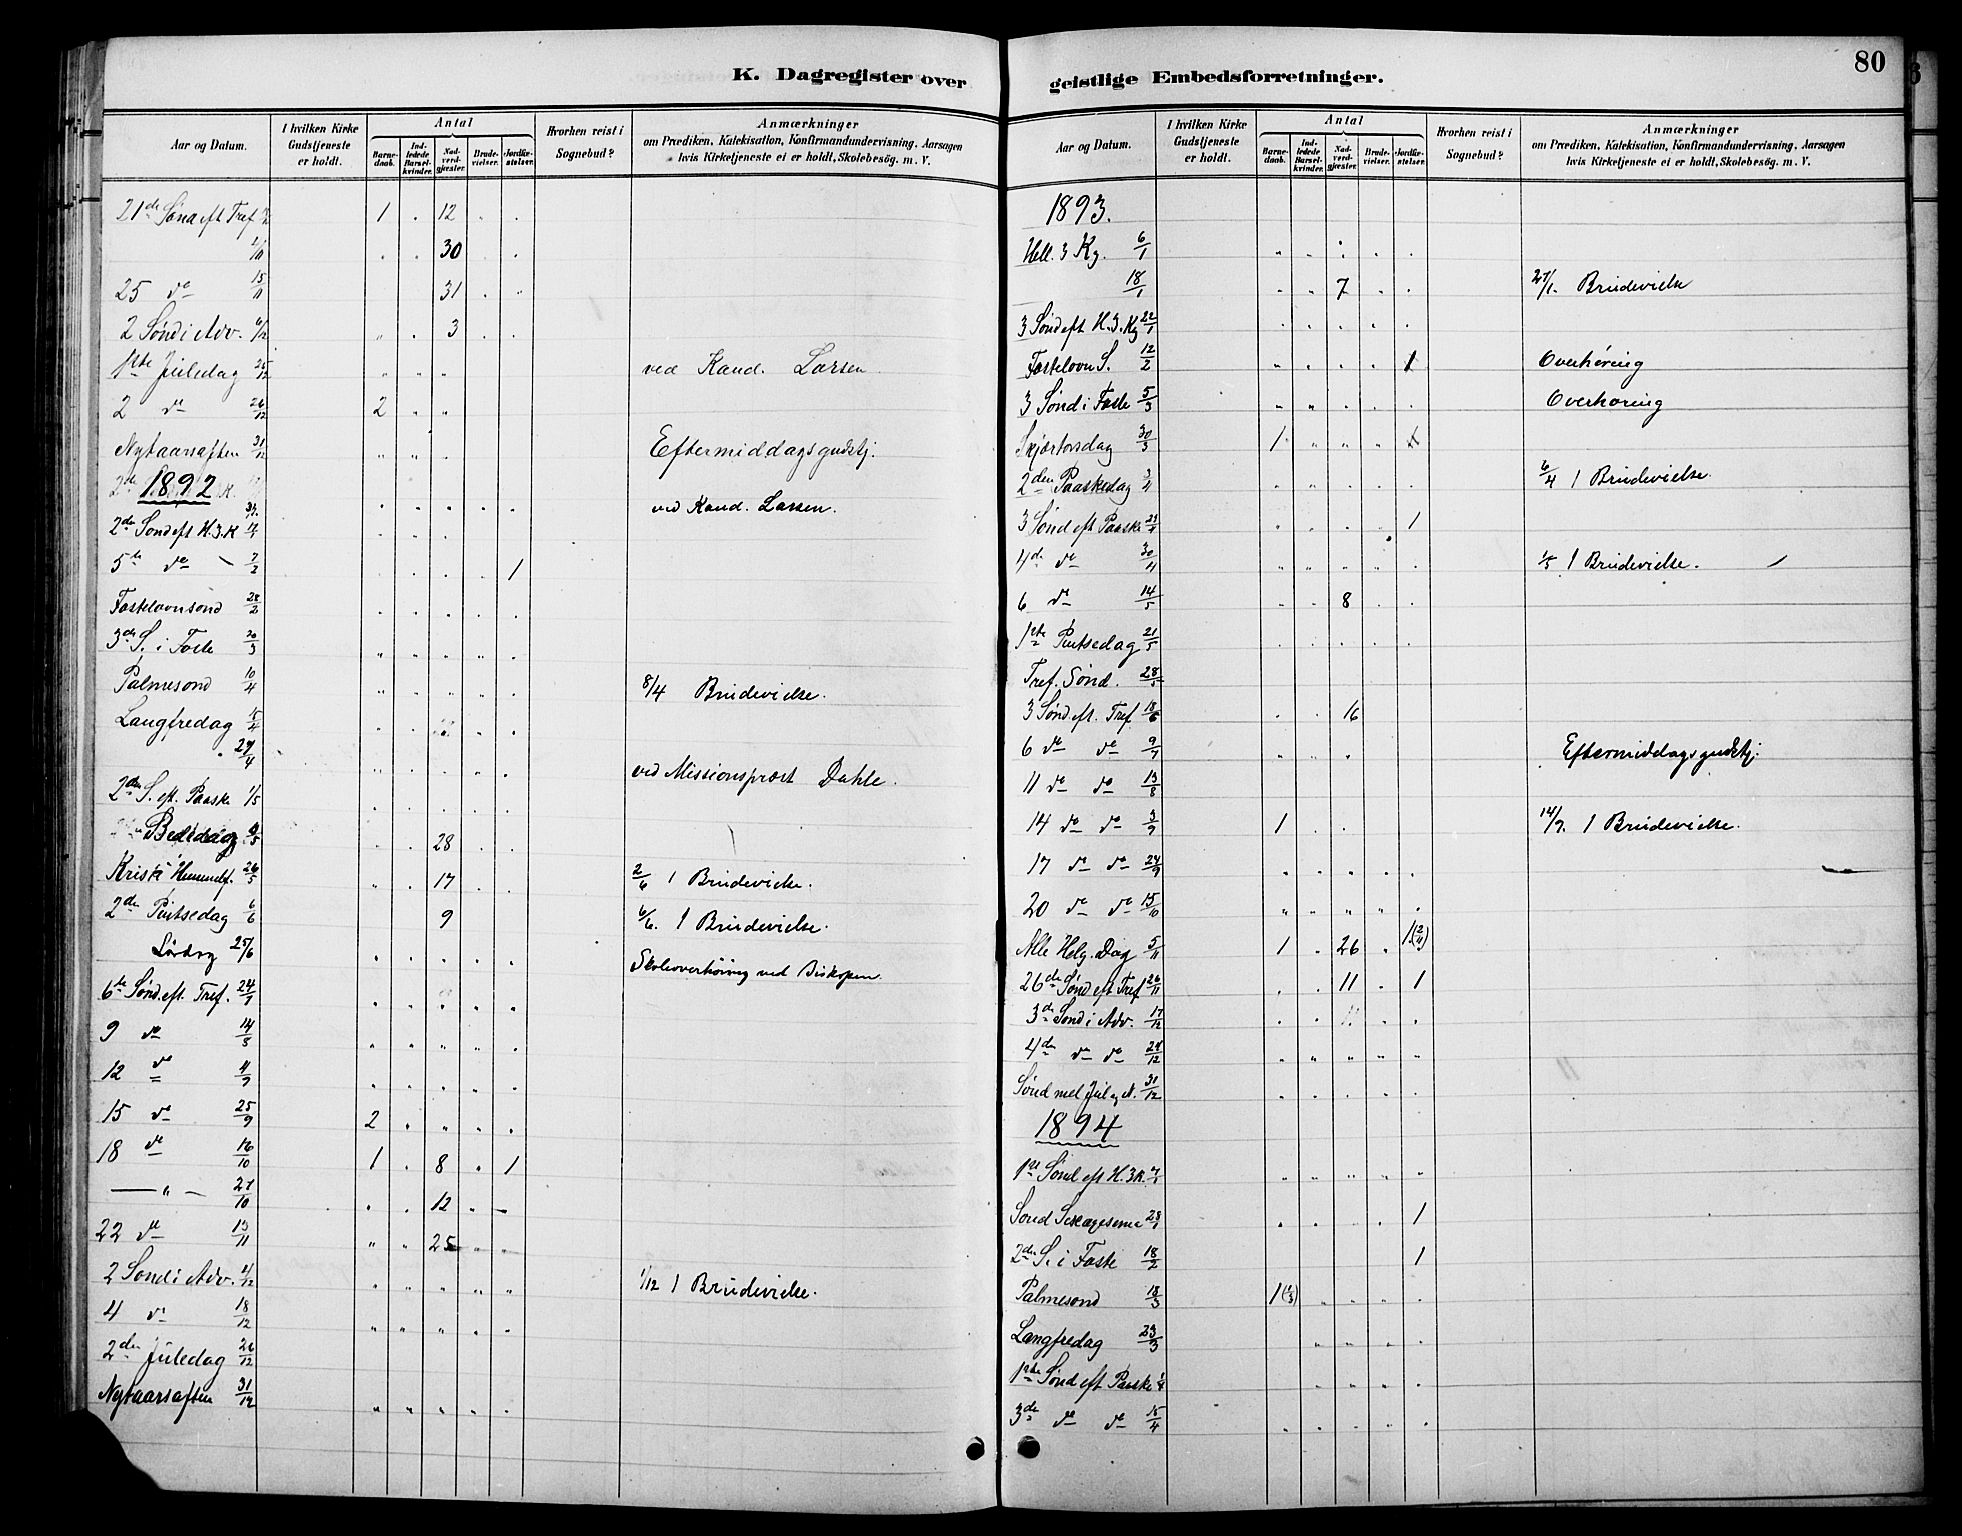 K. Dagregister over
Aar og Datum. I hvilken Kirke Gudstjeneste er holdt. Antal Barnedaab. Indledede Barselkvinder. Nadverdgjæster. Brudevielser. Jordfæstelser. Hvorhen reist i Sognebud? Anmærkninger om Prædiken, Katekisation, Konfirmandundervisning, Aarsagen hvis Kirketjeneste ei er holdt, Skolebesög. m. V.
21de Sönd eft Tref 1 . 12 . .
. . 30 . .
25 do 15/11 31 . "
2 Sönd i Adv. 6/12 " . 3 . .
1ste Juledag 25/12 " " " ved Kand. Larsen
2 do 26/12 2 " "
Nytaarsaften 31/12 " " . Eftermiddagsgudstj.
1892
. . . . . ved Kand. Larsen.
2de Sönd eft H. 3. K 17/1 . . .
5te do - 7/2 . . . . 1
Fastelavnsönd 28/2 . . . . .
3de S. i Faste 20/3 " . . " .
Palmesönd 10/4 " . " . . 8/4 Brudevielse.
Langfredag 15/4 . . . .
24/4 " . . . . ved Missionsprest Dahle.
2den S. eft. Paaske 1/5 . . . . .
Bededag /5 . . 28 . .
Kristi Himmelf. 26/5 " . 17 . . 2/6 1 Brudevielse.
2den Pintsedag 6/6 9 6/6. 1 Brudevielse.
Lördag 25/6 . . . . . Skoleoverhöring ved Biskopen.
6te Sönd. eft. Tref. 24/7 . . . . .
9 do 14/8 " . " " .
12 do 4/9 . . . . .
15 do 25/9 2 . " . .
18 do 16/10 1 . 8 . 1
— " — 27/10 . . 12 . -
22 do 13/11 " " 25 " "
2 Sönd i Adv. 4/12 " . . " " 1/12 1 Brudevielse.
4 do 18/12 " " " " .
2den Juledag 26/12
Nytaarsaften 31/12 " " " . .
geistlige Embedsforretninger.
80
Aar og Datum. I hvilken Kirke Gudstjeneste er holdt. Antal Barnedaab. Indledede Barselkvinder. Nadverdgjæster. Brudevielser. Jordfæstelser. Hvorhen reist i Sognebud? Anmærkninger om Prædiken, Katekisation, Konfirmandundervisning, Aarsagen hvis Kirketjeneste ei er holdt, Skolebesög. m. V.
1893.
Hell. 3 Kg. 6/1 " . . . .
18/1 " " 7 . . 27/1. Brudevielse
3 Sönd eft H. 3. Kg 22/1 . . . . .
Fastelavn S. 12/2 " . . . 1 Overhöring
3 Sönd i Faste 5/3 " " . . . Overhöring
Skjærtorsdag 30/3 1 " " " 1
2den Paaskedag 3/4 . . . . . 6/4 1 Brudevielse.
3 Sönd eft Paaske 23/4 . . . . 1
4de do 30/4 " " " " . 1/5 1 Brudevielse.
6 do 14/5 . . 8 . .
1ste Pintsedag 21/5 . . . . .
Tref. Sönd. 28/5
3 Sönd. eft. Tref 18/6 . . 16
6 do do 9/7 . " " Eftermiddagsgudstj.
11 do do 13/8
14 do do 3/9 1 . . 14/9. 1 Brudevielse.
17 do do 24/9 . . . . .
20 do do 15/10 " " " " .
Alle Helg. Dag 5/11 1 . 26 . 1
26de Sönd eft Tref 26/11 . . 11 . 1
3de Sönd i Adv. 17/12 . . . .
4de do do 24/12 " " " " "
Sönd mel Jul og N. 31/12 . . . . .
1894
1ste Sönd eft H. 3 K. 7/1 " " " " "
Sönd 28/1 . . . . 1
2den S. i Faste 18/2 1
Palmesönd 18/3 1 " " " .
Langfredag 23/3 " " " "
1ste Sönd eft Paaske " " " "
3de do do 15/4 . . . . .